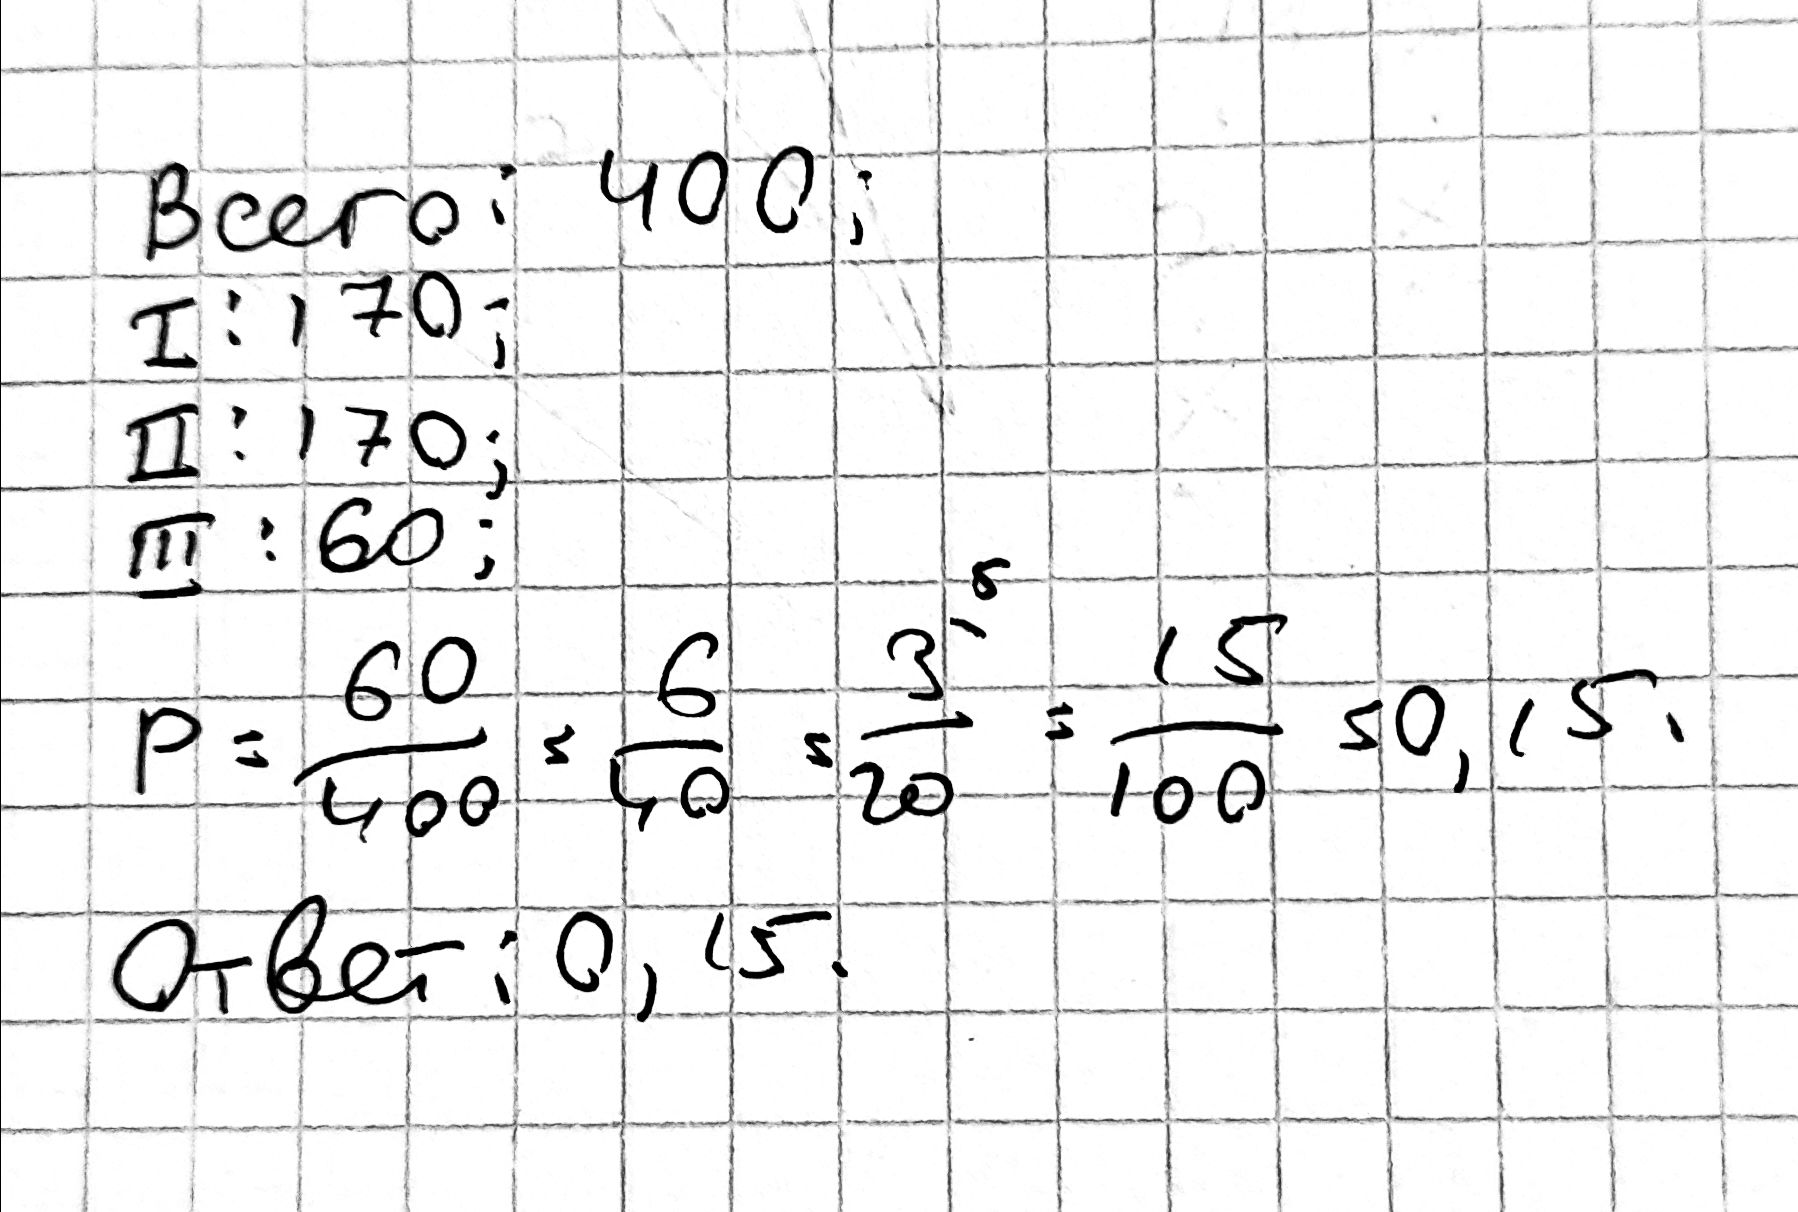 Всего: 400;
I: 170;
II: 170;
III: 60;
P = 60/400 = 6/40 = 3/20 ^5 = 15/100 = 0,15.
Ответ: 0,15.